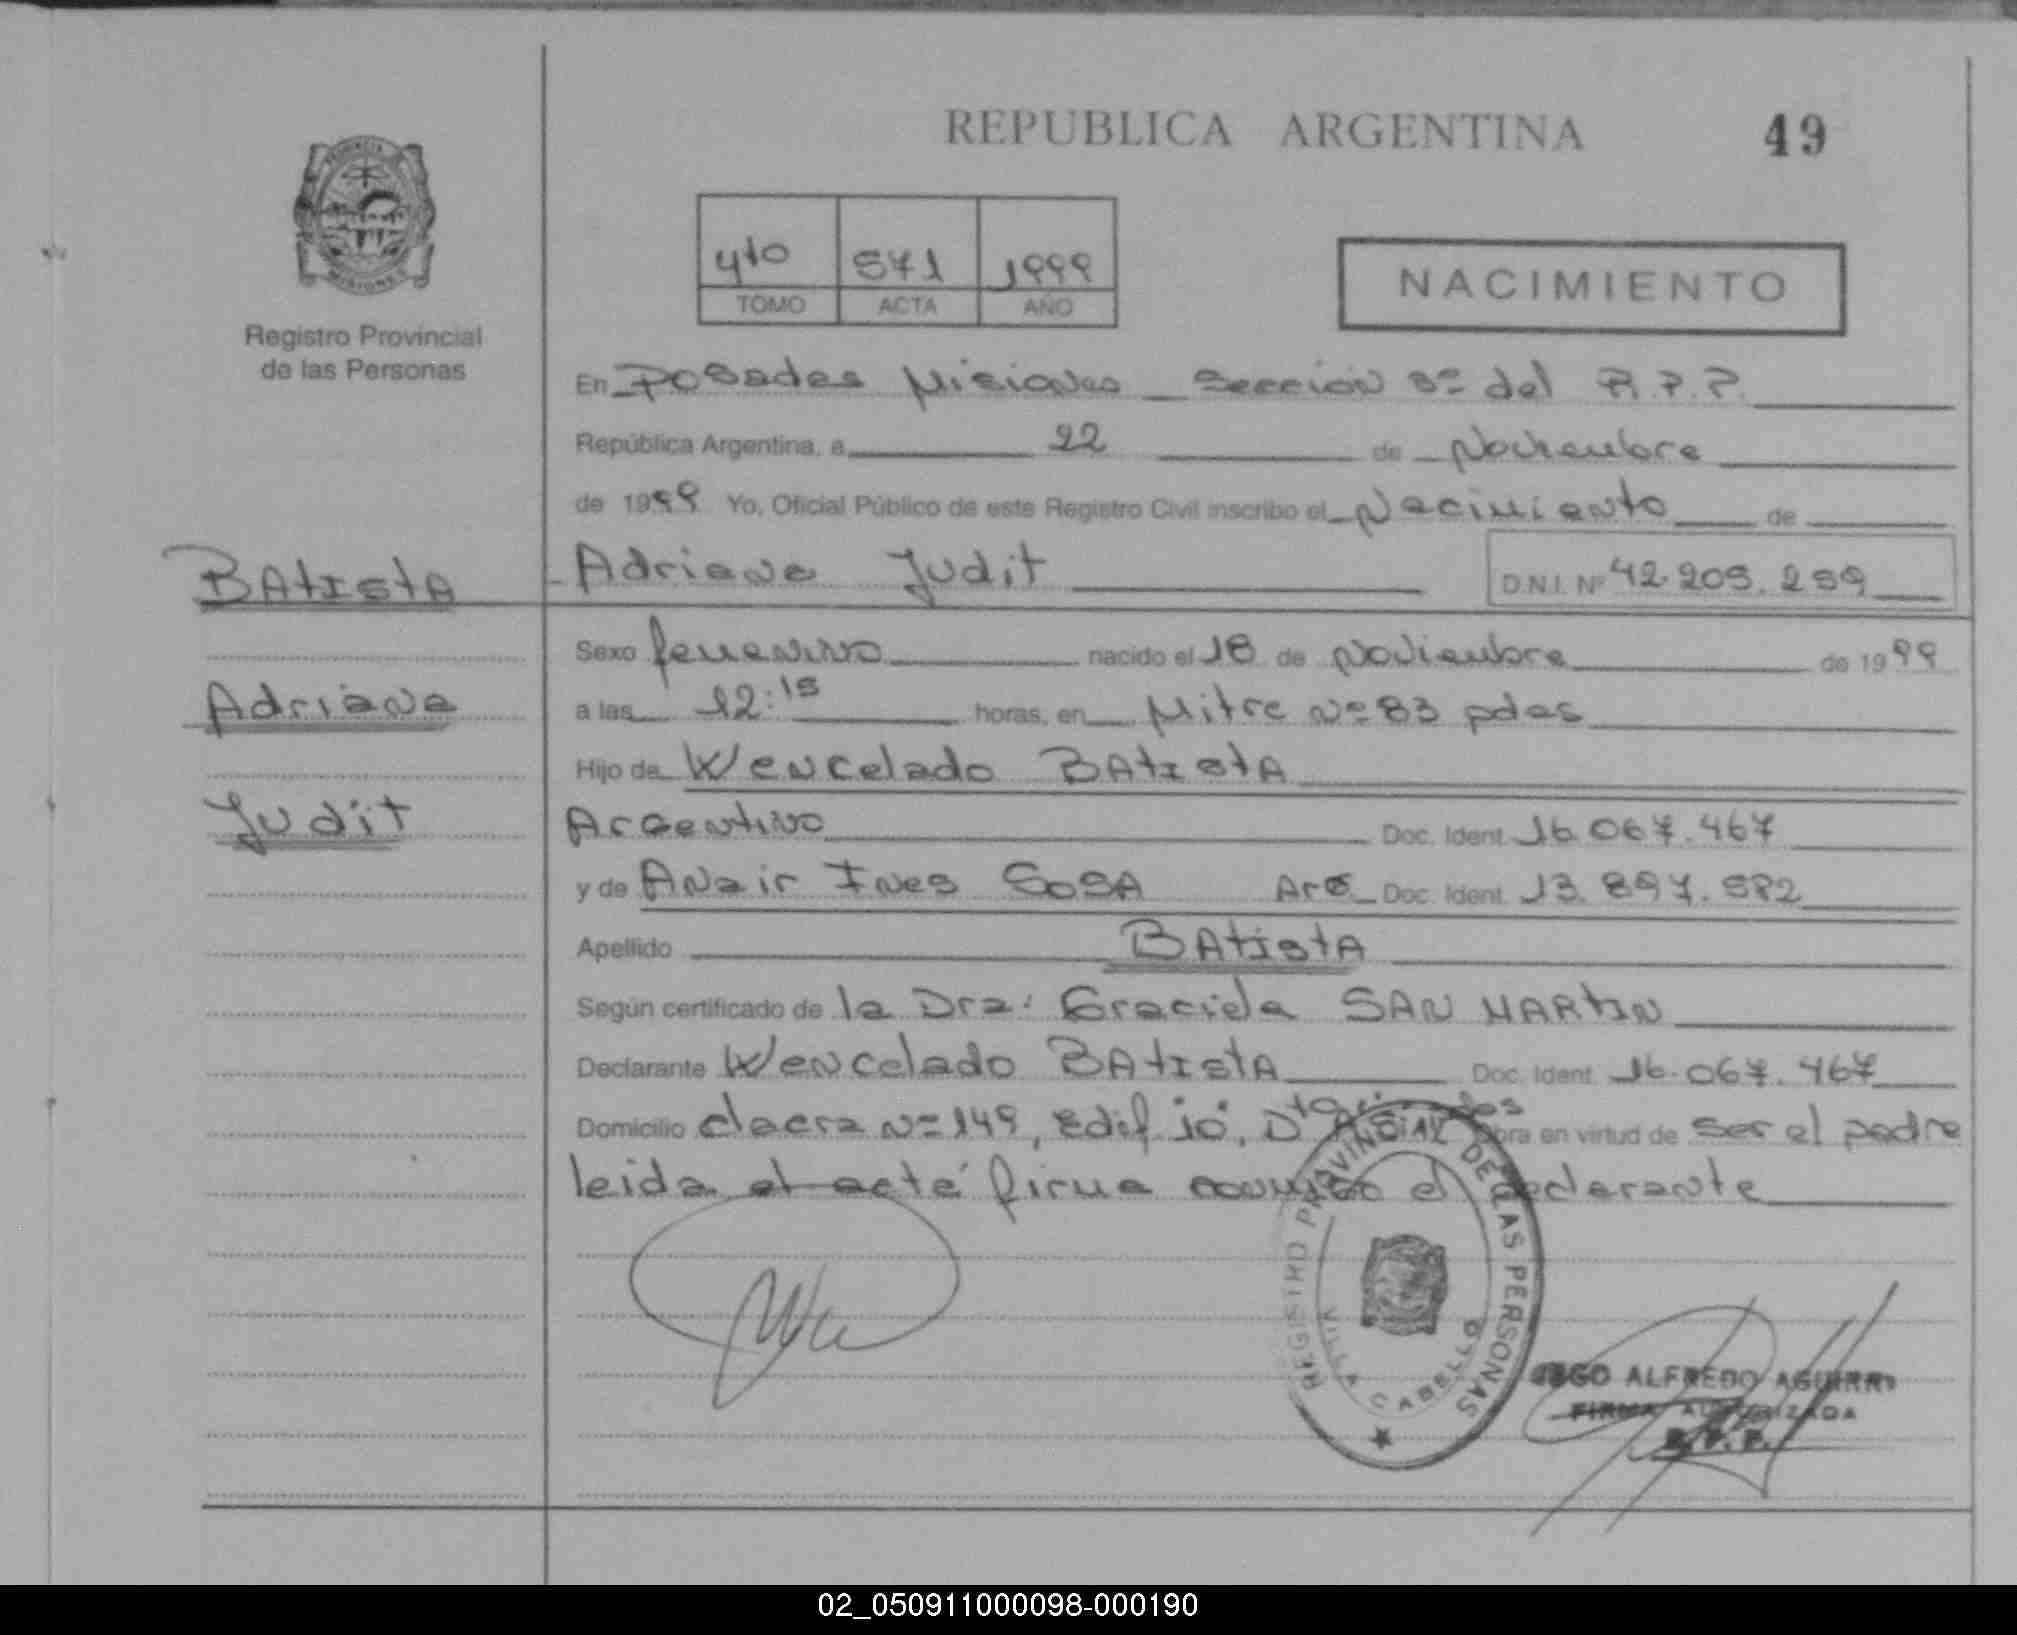 REPUBLICA ARGENTINA
49
4to 571 1999
TOMO ACTA AÑO
NACIMIENTO
PROVINCIA DE MISIONES
Registro Provincial
de las Personas
En Posadas Misiones Sección 3º del R.P.P.
República Argentina, a 22 de Noviembre
de 1999 Yo, Oficial Público de este Registro Civil inscribo el Nacimiento de
BAtistA
Adriana Judit
D.N.I. Nº 42.205.259
Sexo femenino nacido el 18 de Noviembre de 1999
Adriana
a las 12:15 horas, en Mitre Nº 83 pdas
Hijo de Wencelado BAtistA
Judit
Argentino Doc. Ident. 16.067.467
y de Anair Ines SOSA Arg Doc. Ident. 13.897.582
Apellido BAtistA
Según certificado de la Dra: Graciela SAN MARtIN
Declarante Wencelado BAtistA Doc. Ident. 16.067.467
Domicilio chacra Nº 149, Edif 10, Dto obra en virtud de ser el padre
leida el acta firma conmigo el declarante
REGISTRO PROVINCIAL DE LAS PERSONAS
VILLA CABELLO
ALFREDO AGUIRRE
FIRMA AUTORIZADA
R. P. P.
02_050911000098-000190